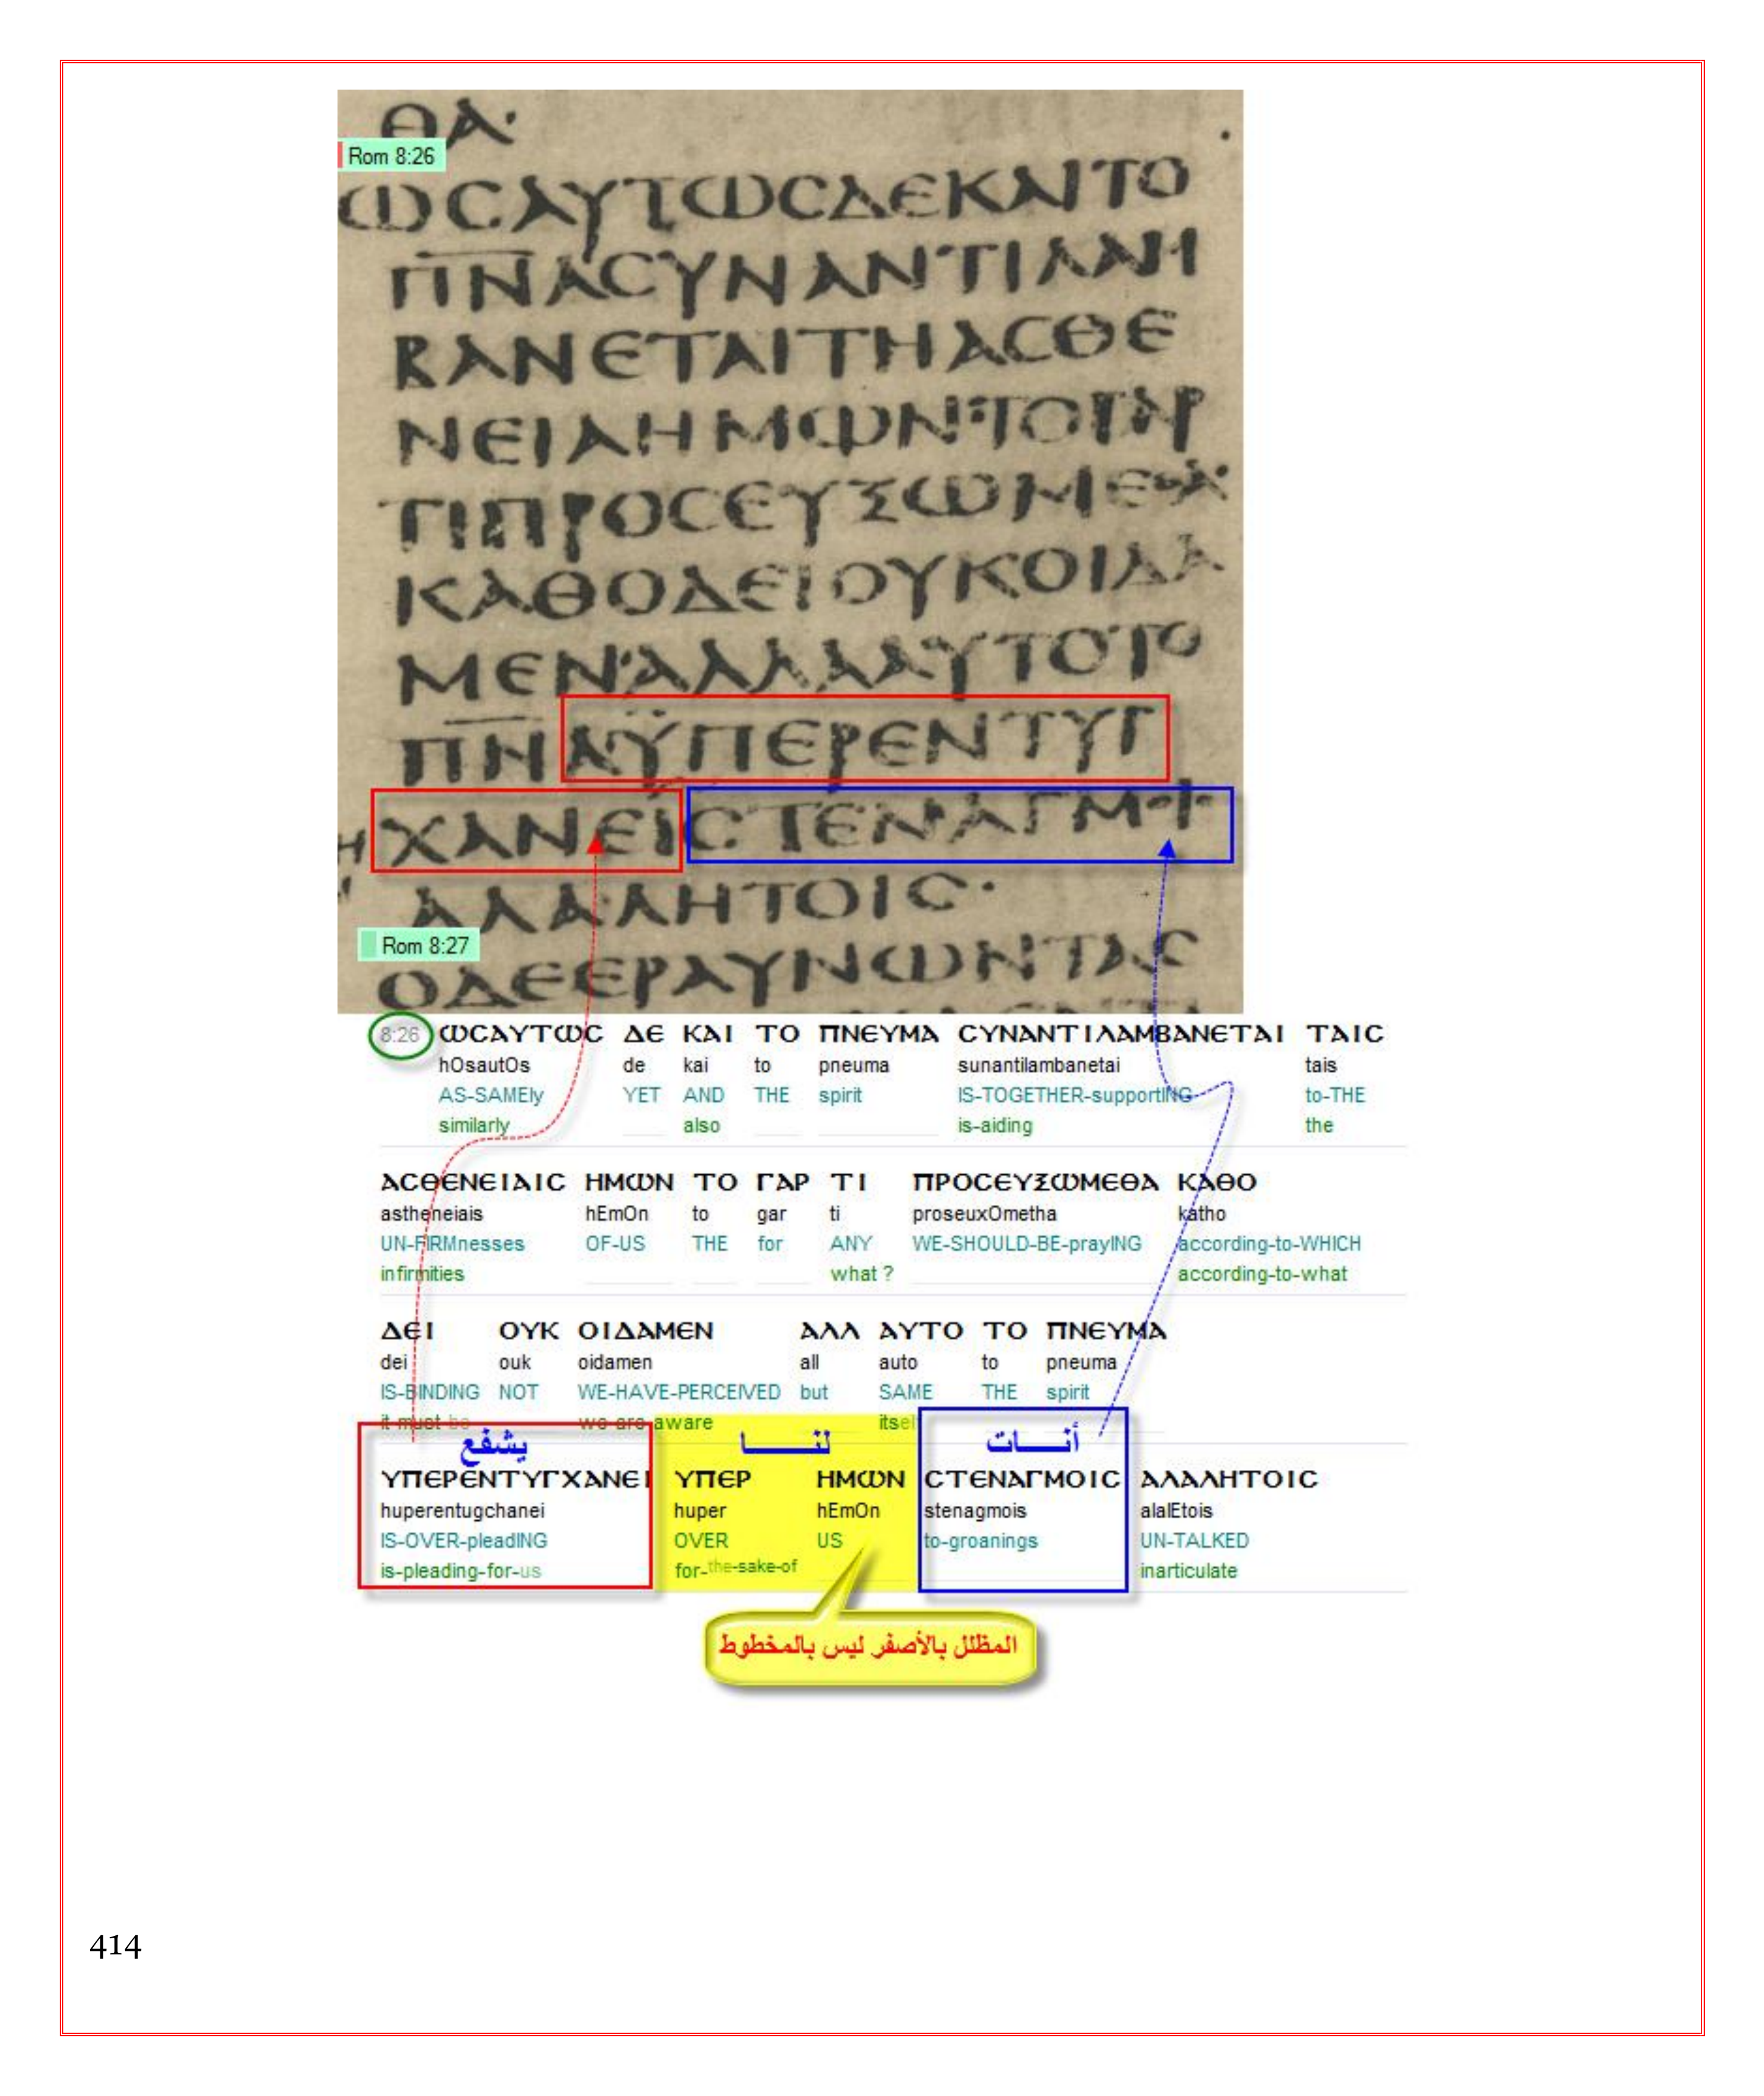 ΘΑ·
Rom 8:26
ΩϹΑΥΤΩϹΔΕΚΑΙΤΟ
ΠΝΑϹΥΝΑΝΤΙΛΑΝ
ΒΑΝΕΤΑΙΤΗΑϹΘΕ
ΝΕΙΑΗΜΩΝ·ΤΟΓΑΡ
ΤΙΠΡΟϹΕΥΞΩΜΕΘΑ·
ΚΑΘΟΔΕΙΟΥΚΟΙΔΑ
ΜΕΝ·ΑΛΛΑΑΥΤΟΤΟ
ΠΝΑΫΠΕΡΕΝΤΥΓ
ΧΑΝΕΙϹΤΕΝΑΓΜ
ΑΛΑΛΗΤΟΙϹ·
Rom 8:27
ΟΔΕΕΡΑΥΝΩΝΤΑϹ
8:26 ΩϹΑΥΤΩϹ ΔΕ ΚΑΙ ΤΟ ΠΝΕΥΜΑ ϹΥΝΑΝΤΙΛΑΜΒΑΝΕΤΑΙ ΤΑΙϹ
hOsautOs de kai to pneuma sunantilambanetai tais
AS-SAMEly YET AND THE spirit IS-TOGETHER-supportING to-THE
similarly also is-aiding the
ΑϹΘΕΝΕΙΑΙϹ ΗΜΩΝ ΤΟ ΓΑΡ ΤΙ ΠΡΟϹΕΥΞΩΜΕΘΑ ΚΑΘΟ
astheneiais hEmOn to gar ti proseuxOmetha katho
UN-FIRMnesses OF-US THE for ANY WE-SHOULD-BE-prayING according-to-WHICH
infirmities what ? according-to-what
ΔΕΙ ΟΥΚ ΟΙΔΑΜΕΝ ΑΛΛ ΑΥΤΟ ΤΟ ΠΝΕΥΜΑ
dei ouk oidamen all auto to pneuma
IS-BINDING NOT WE-HAVE-PERCEIVED but SAME THE spirit
it-must-be we-are-aware itself
يشفع لنـــــا أنـــات
ΥΠΕΡΕΝΤΥΓΧΑΝΕΙ ΥΠΕΡ ΗΜΩΝ ϹΤΕΝΑΓΜΟΙϹ ΑΛΑΛΗΤΟΙϹ
huperentugchanei huper hEmOn stenagmois alalEtois
IS-OVER-pleadING OVER US to-groanings UN-TALKED
is-pleading-for-us for-the-sake-of inarticulate
المظلل بالأصفر ليس بالمخطوط
414